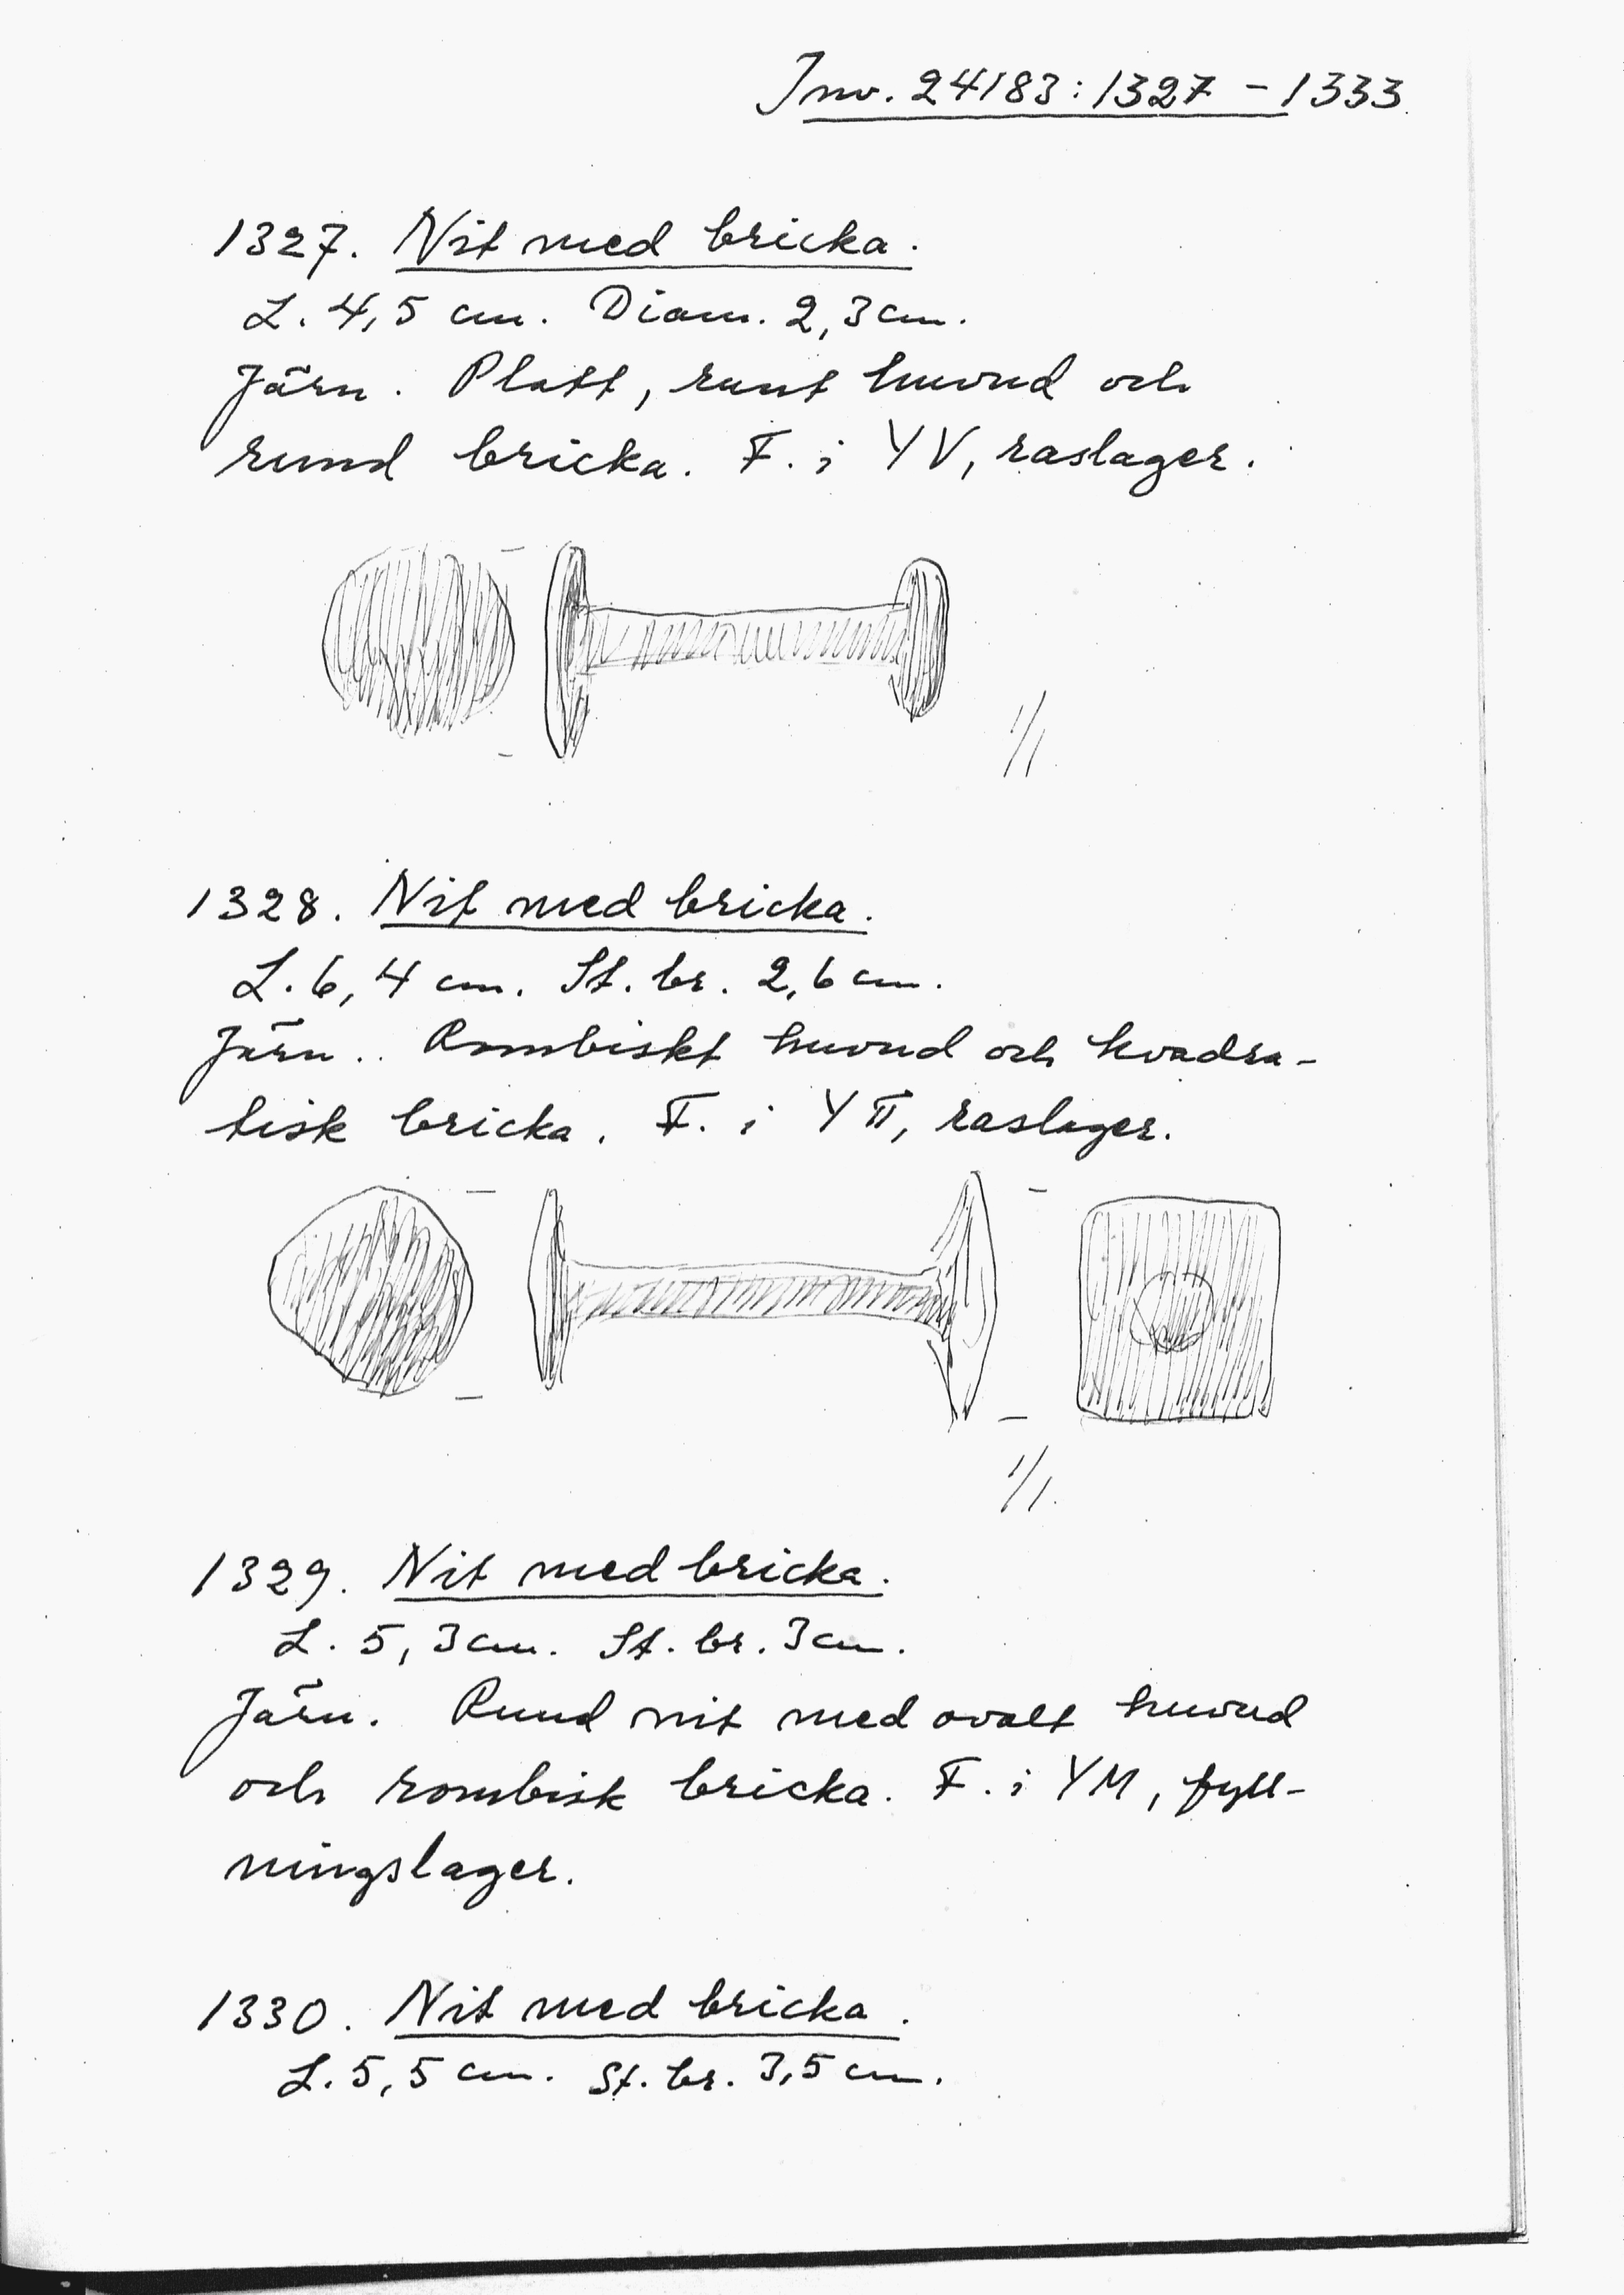 Inv. 24183:1327-1333.
1327. Nit med bricka.
L. 4,5 cm. Diam. 2,3 cm.
Järn. Platt, runt huvud och
rund bricka. F. i YV, raslager.
1/1
1328. Nit med bricka.
L. 6,4 cm. St. br. 2,6 cm.
Järn. Rombiskt huvud och kvadra-
tisk bricka. F. i YΠ, raslager.
1/1.
1329. Nit med bricka.
L. 5,3 cm. St. br. 3 cm.
Järn. Rund nit med ovalt huvud
och rombisk bricka. F. i YM, fyll-
ningslager.
1330. Nit med bricka.
L. 5,5 cm. St. br. 3,5 cm.